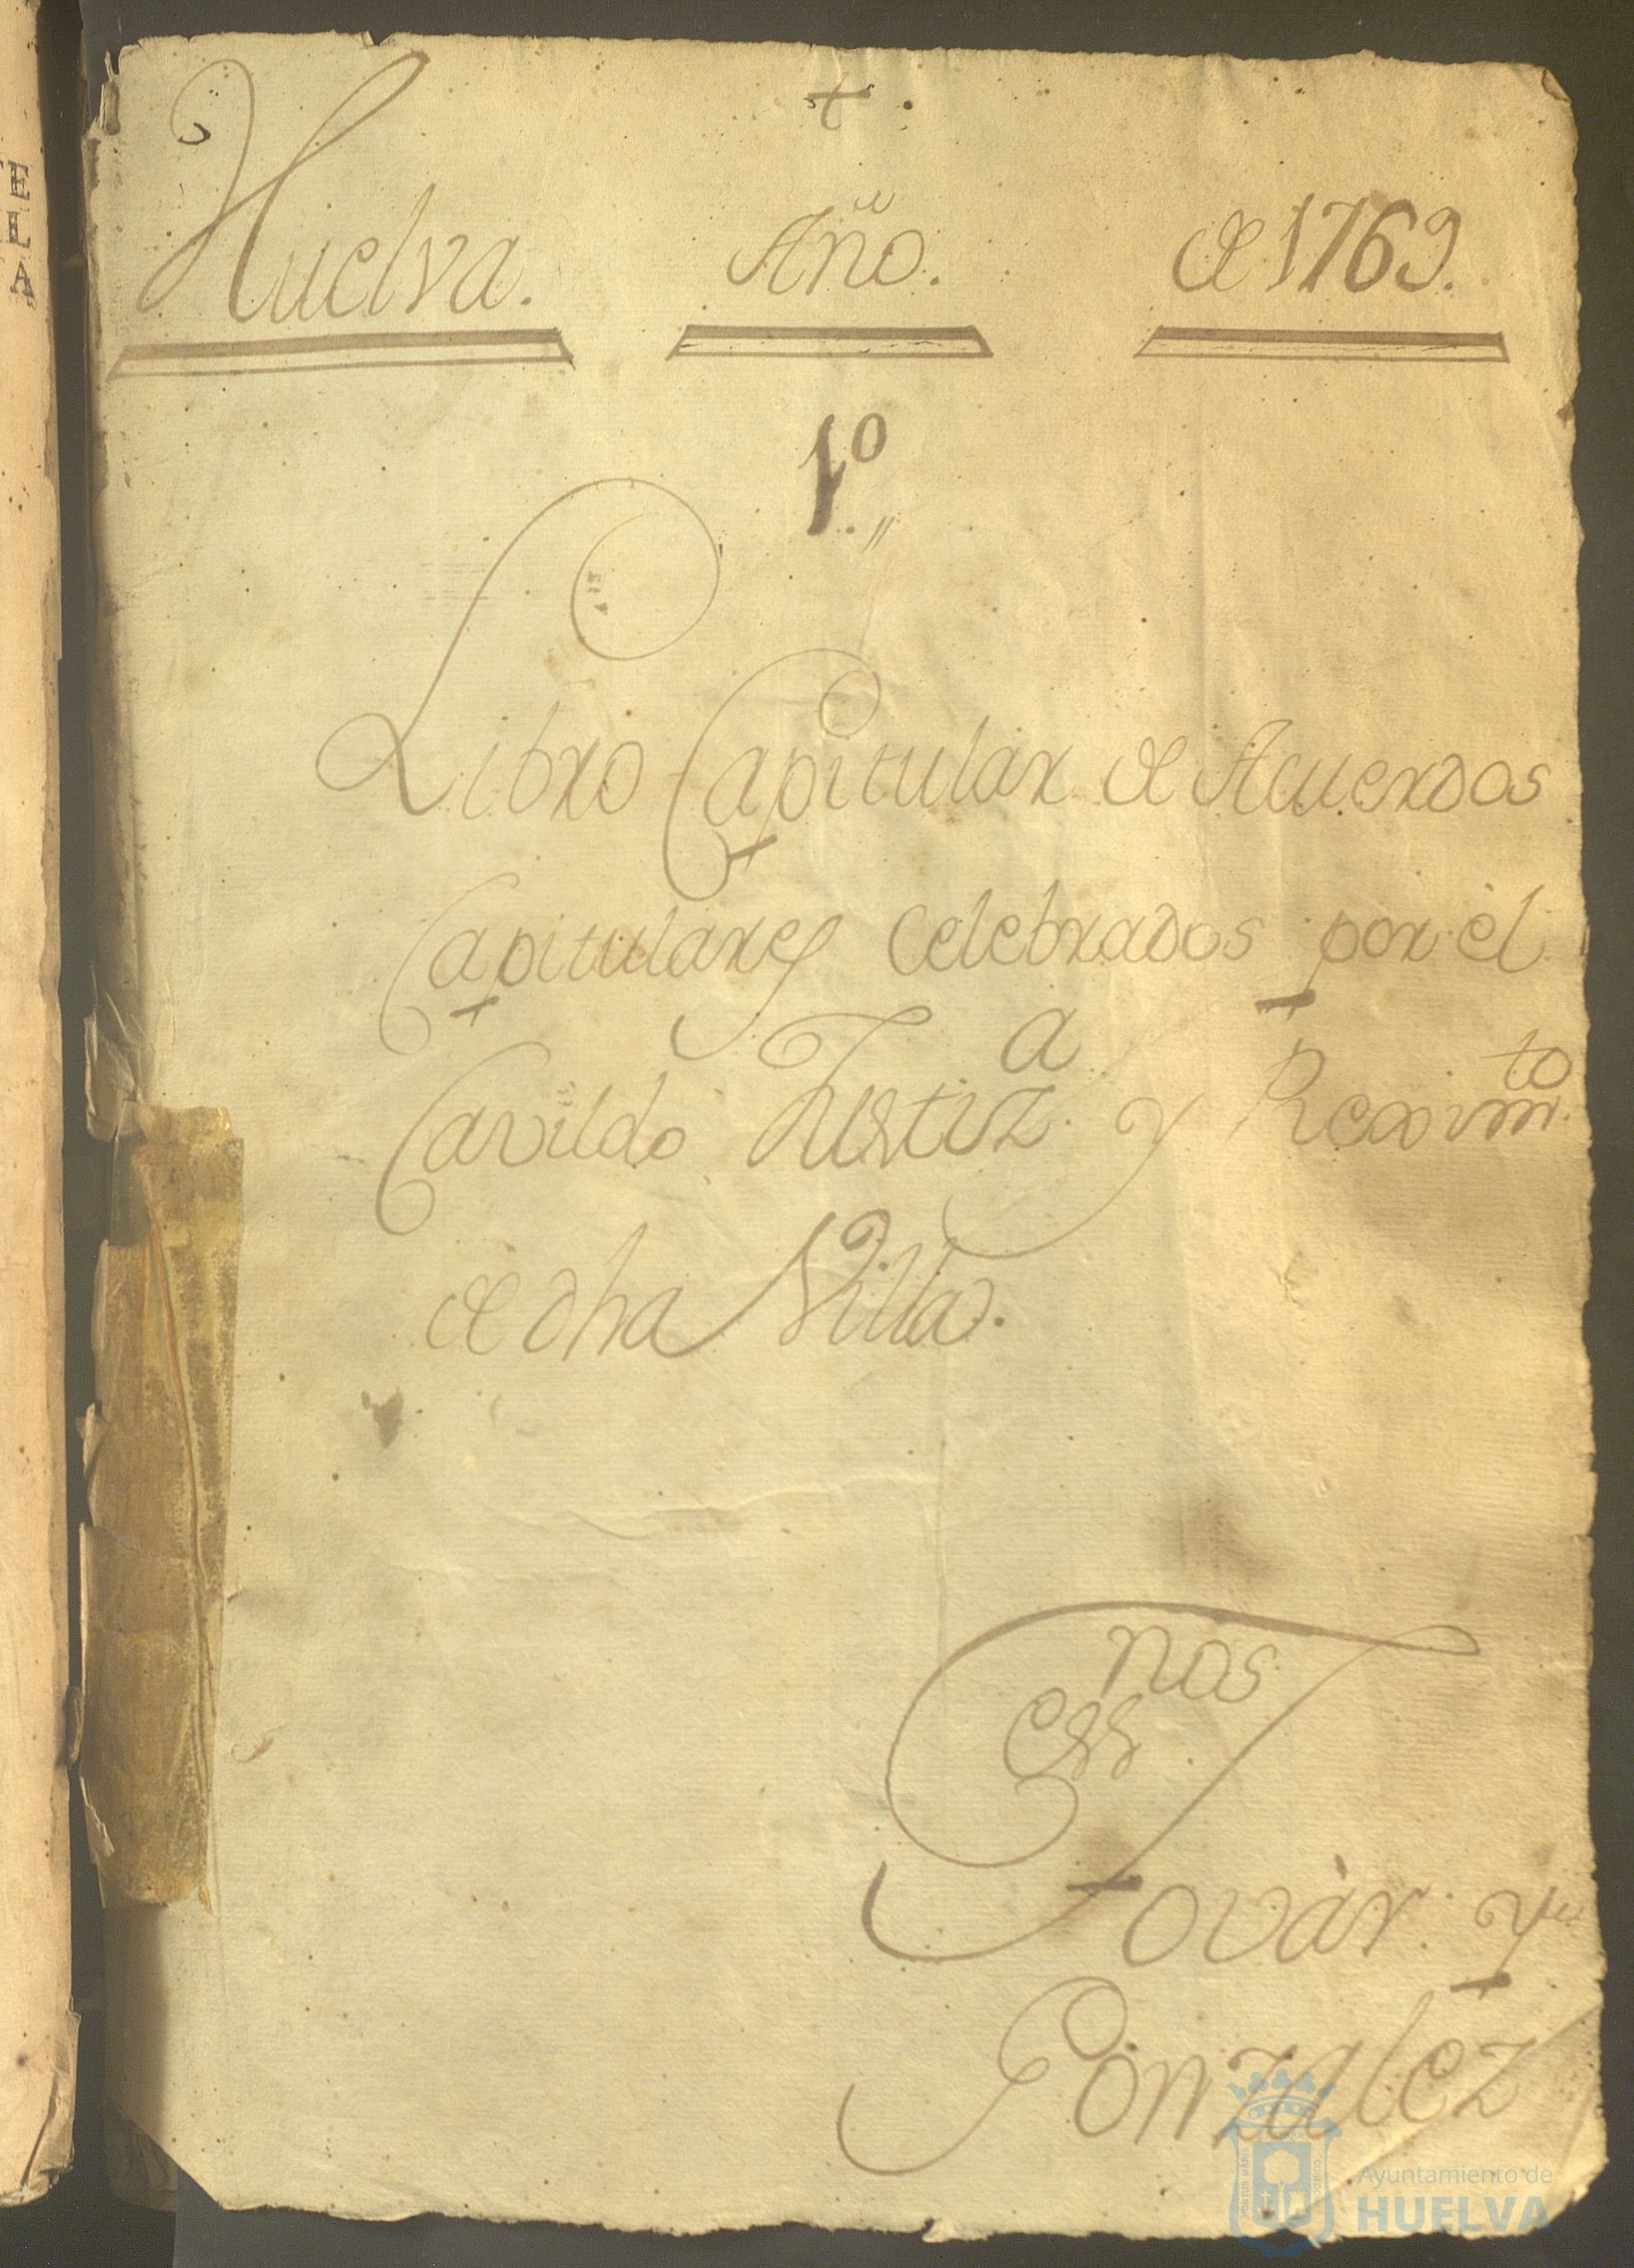 E
L
A
+
Huelva. Año. de 1769.
1º
Libro Capitular de Acuerdos
Capitulares Celebrados por èl
Cavildo Justiz.ª y Regim.to
de dha Villa.
Essnos
Tovàr y
Gonzalez
Ayuntamiento de
HUELVA